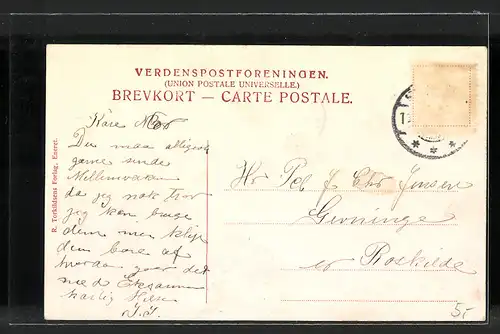 VERDENSPOSTFORENINGEN.
(UNION POSTALE UNIVERSELLE.)
BREVKORT — CARTE POSTALE.
R. Torkildsens Forlag, Eneret.
Kære Mor
Du maa alligevel
gerne sende
da jeg nok tror
jeg kan bruge
dem men klip
dem bare af
hvordan gaar det
med Eksamen
Kærlig Hilsen
J.J.
Hr P J Chr Jensen
Gevninge
Roskilde
5-